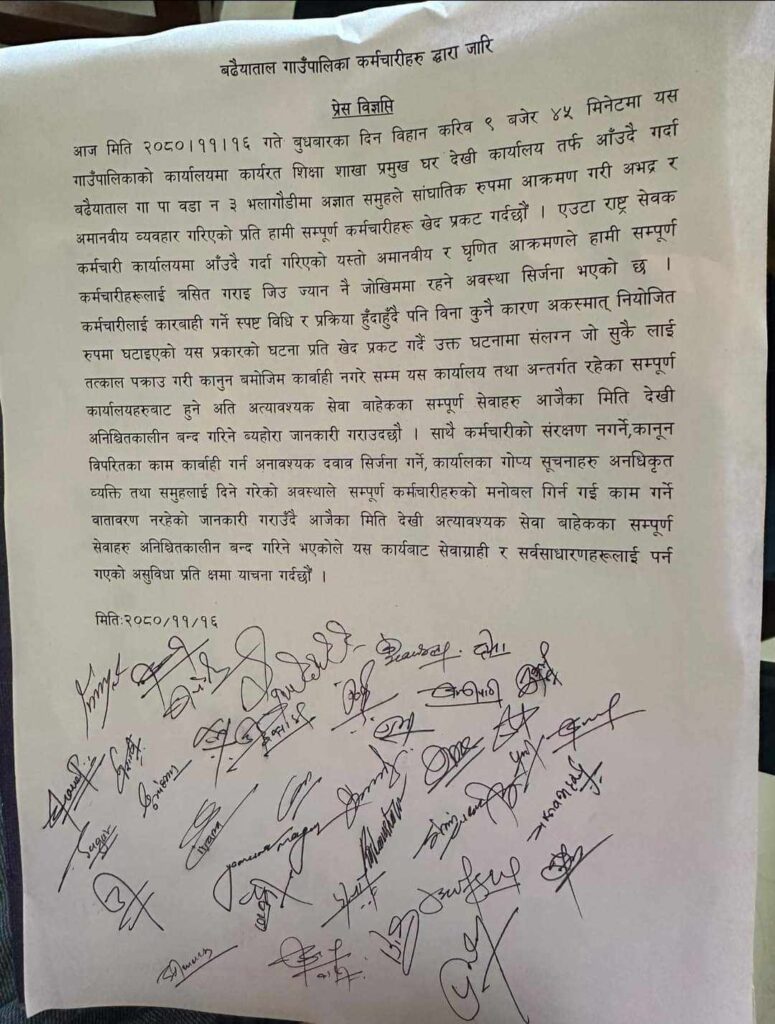 बढैयाताल गाउँपालिका कर्मचारीहरु द्वारा जारि
प्रेस विज्ञप्ति
आज मिति २०८०।११।१६ गते बुधबारका दिन विहान करिव ९ बजेर ४५ मिनेटमा यस
गाउँपालिकाको कार्यालयमा कार्यरत शिक्षा शाखा प्रमुख घर देखी कार्यालय तर्फ आँउदै गर्दा
बढैयाताल गा पा वडा न ३ भलागौडीमा अज्ञात समुहले सांघातिक रुपमा आक्रमण गरी अभद्र र
अमानवीय व्यवहार गरिएको प्रति हामी सम्पूर्ण कर्मचारीहरू खेद प्रकट गर्दछौं । एउटा राष्ट्र सेवक
कर्मचारी कार्यालयमा आँउदै गर्दा गरिएको यस्तो अमानवीय र घृणित आक्रमणले हामी सम्पूर्ण
कर्मचारीहरूलाई त्रसित गराइ जिउ ज्यान नै जोखिममा रहने अवस्था सिर्जना भएको छ ।
कर्मचारीलाई कारबाही गर्ने स्पष्ट विधि र प्रक्रिया हुँदाहुँदै पनि विना कुनै कारण अकस्मात् नियोजित
रुपमा घटाइएको यस प्रकारको घटना प्रति खेद प्रकट गर्दै उक्त घटनामा संलग्न जो सुकै लाई
तत्काल पक्राउ गरी कानुन बमोजिम कार्वाही नगरे सम्म यस कार्यालय तथा अन्तर्गत रहेका सम्पूर्ण
कार्यालयहरुबाट हुने अति अत्यावश्यक सेवा बाहेकका सम्पूर्ण सेवाहरु आजैका मिति देखी
अनिश्चितकालीन बन्द गरिने ब्यहोरा जानकारी गराउदछौ । साथै कर्मचारीको संरक्षण नगर्ने,कानून
विपरितका काम कार्वाही गर्न अनावश्यक दवाव सिर्जना गर्ने, कार्यालका गोप्य सूचनाहरु अनधिकृत
व्यक्ति तथा समुहलाई दिने गरेको अवस्थाले सम्पूर्ण कर्मचारीहरुको मनोबल गिर्न गई काम गर्ने
वातावरण नरहेको जानकारी गराउँदै आजैका मिति देखी अत्यावश्यक सेवा बाहेकका सम्पूर्ण
सेवाहरु अनिश्चितकालीन बन्द गरिने भएकोले यस कार्यबाट सेवाग्राही र सर्वसाधारणहरूलाई पर्न
गएको असुविधा प्रति क्षमा याचना गर्दछौं ।
मितिः२०८०/११/१६